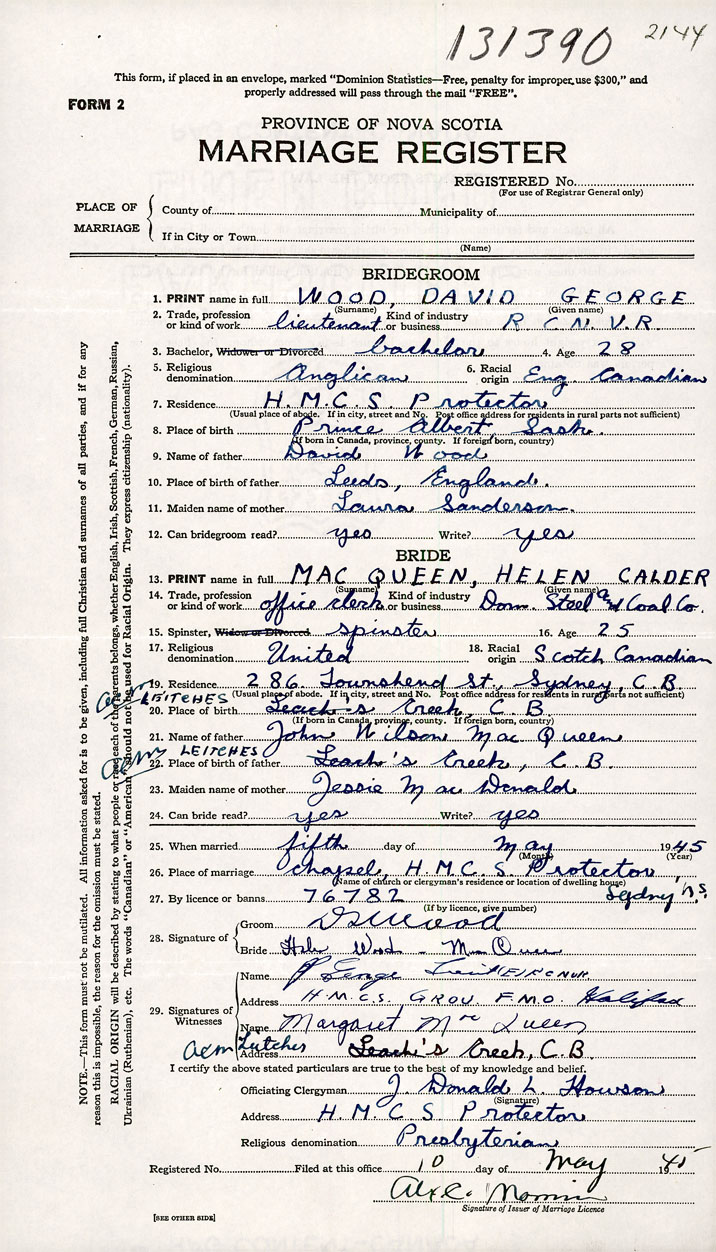 131390 2144
This form, if placed in an envelope, marked "Dominion Statistics—Free, penalty for improper use $300," and
properly addressed will pass through the mail "FREE".
FORM 2
PROVINCE OF NOVA SCOTIA
MARRIAGE REGISTER
REGISTERED No.
(For use of Registrar General only)
PLACE OF MARRIAGE
County of Municipality of
If in City or Town
(Name)
BRIDEGROOM
1. PRINT name in full WOOD, DAVID GEORGE
(Surname) (Given name)
2. Trade, profession or kind of work lieutenant Kind of industry or business R.C.N.V.R.
3. Bachelor, Widower or Divorced bachelor 4. Age 28
5. Religious denomination Anglican 6. Racial origin Eng. Canadian
7. Residence H.M.C.S Protector
(Usual place of abode. If in city, street and No. Post office address for residents in rural parts not sufficient)
8. Place of birth Prince Albert, Sask.
(If born in Canada, province, county. If foreign born, country)
9. Name of father David Wood
10. Place of birth of father Leeds, England.
11. Maiden name of mother Laura Sanderson.
12. Can bridegroom read? yes Write? yes
BRIDE
13. PRINT name in full MAC QUEEN, HELEN CALDER
(Surname) (Given name)
14. Trade, profession or kind of work office clerk Kind of industry or business Dom. Steel and Coal Co.
15. Spinster, Widow or Divorced spinster 16. Age 25
17. Religious denomination United 18. Racial origin Scotch Canadian
19. Residence 286 Townshend St., Sydney, C.B.
(Usual place of abode. If in city, street and No. Post office address for residents in rural parts not sufficient)
acm LEITCHES
20. Place of birth Leach's Creek, C.B.
(If born in Canada, province, county. If foreign born, country)
21. Name of father John Wilson Mac Queen
acm LEITCHES
22. Place of birth of father Leach's Creek, C.B.
23. Maiden name of mother Jessie Mac Donald
24. Can bride read? yes Write? yes
25. When married fifth day of May 1945
(Month) (Year)
26. Place of marriage chapel, H.M.C.S. Protector, Sydney N.S.
(Name of church or clergyman's residence or location of dwelling house)
27. By licence or banns 76782
(If by licence, give number)
28. Signature of
Groom DGWood
Bride Helen Wood - MacQueen
29. Signatures of Witnesses
Name
Address H.M.C.S. F.M.O. Halifax
Name Margaret MacQueen
acm Leitches
Address Leach's Creek, C.B.
I certify the above stated particulars are true to the best of my knowledge and belief.
Officiating Clergyman J. Donald L. Howson
(Signature)
Address H.M.C.S Protector
Religious denomination Presbyterian
Registered No. Filed at this office 10 day of May 1945
Signature of Issuer of Marriage Licence
[SEE OTHER SIDE]
NOTE.—This form must not be mutilated. All information asked for is to be given, including full Christian and surnames of all parties, and if for any
reason this is impossible, the reason for the omission must be stated.
RACIAL ORIGIN will be described by stating to what people or race each of the parents belongs, whether English, Irish, Scottish, French, German, Russian,
Ukrainian (Ruthenian), etc. The words "Canadian" or "American" should not be used for Racial Origin. They express citizenship (nationality).